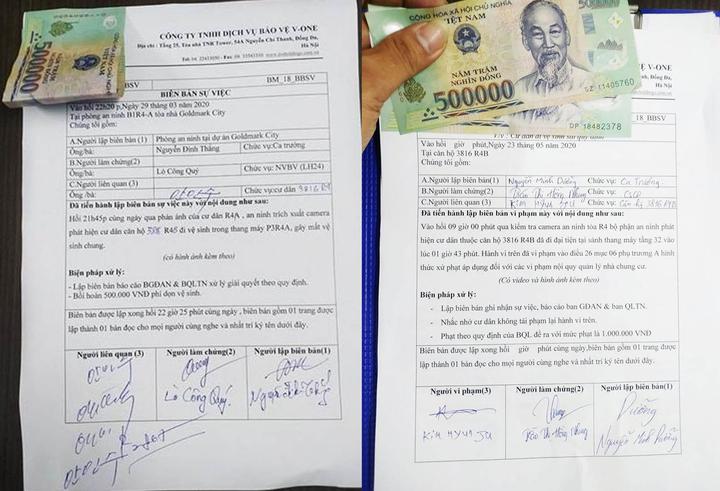 500000
CÔNG TY TNHH DỊCH VỤ BẢO VỆ V-ONE
Địa chỉ : Tầng 25, Tòa nhà TNR Tower, 54A Nguyễn Chí Thanh, Đống Đa,
Hà Nội
BBSV
BM_18_BBSV
BIÊN BẢN SỰ VIỆC
Vào hồi 22h20 p,Ngày 29 tháng 03 năm 2020
Tại phòng an ninh B1R4-A tòa nhà Goldmark City
Chúng tôi gồm:
A.Người lập biên bản (1) Phòng an ninh tại dự án Goldmark City
Ông/bà: Nguyễn Đình Thắng Chức vụ:Ca trưởng
B.Người làm chứng(2)
Ông/bà: Lò Công Quý Chức vụ: NVBV (LH24)
C.Người liên quan (3)
Ông /bà: Chức vụ:cư dân 3816 R4
Đã tiến hành lập biên bản sự việc này với nội dung như sau:
Hồi 21h45p cùng ngày qua phản ánh của cư dân R4A , an ninh trích xuất camera
phát hiện cư dân căn hộ R45 đi vệ sinh trong thang máy P3R4A, gây mất vệ
sinh chung.
(có hình ảnh kèm theo)
Biện pháp xử lý:
- Lập biên bản báo cáo BGĐAN & BQLTN xử lý giải quyết theo quy định.
- Bồi hoàn 500.000 VNĐ phí dọn vệ sinh.
Biên bản được lập xong hồi 22 giờ 25 phút cùng ngày , biên bản gồm 01 trang được
lập thành 01 bản đọc cho mọi người cùng nghe và nhất trí ký tên dưới đây.
Người liên quan (3) Người làm chứng(2) Người lập biên bản(1)
Lò Công Quý
CỘNG HÒA XÃ HỘI CHỦ NGHĨA
VIỆT NAM
NĂM TRĂM
NGHÌN ĐỒNG
500000
SZ 11405760
DP 18482378
VỆ V-ONE
Đống Đa,
BBSV
Vào hồi giờ phút,Ngày 23 tháng 05 năm 2020
Tại căn hộ 3816 R4B
Chúng tôi gồm:
A.Người lập biên bản(1) Nguyễn Minh Dưỡng Chức vụ: Ca Trưởng
B.Người làm chứng(2) Đào Thị Hồng Nhung Chức vụ:
C.Người liên quan (3) KIM HYUN JU Chức vụ: Căn hộ 3816 R4B
Đã tiến hành lập biên bản vi phạm này với nội dung như sau:
Vào hồi 09 giờ 00 phút qua kiểm tra camera an ninh tòa R4 bộ phận an ninh phát
hiện cư dân thuộc căn hộ 3816 R4B đã đi đại tiện tại sảnh thang máy tầng 32 vào
lúc 01 giờ 43 phút. Hành vi này vi phạm vào điều 26 mục 06 phụ trương A hình
thức xử phạt áp dụng đối với các vi phạm nội quy quản lý nhà chung cư.
(Có video và hình ảnh kèm theo)
Biện pháp xử lý:
- Lập biên bản ghi nhận sự việc, báo cáo ban GĐAN & ban QLTN.
- Nhắc nhở cư dân không tái phạm lại hành vi trên.
- Phạt theo quy định của BQL đề ra với mức phạt là 1.000.000 VNĐ
Biên bản được lập xong hồi giờ phút cùng ngày, biên bản gồm 01 trang được
lập thành 01 bản đọc cho mọi người cùng nghe và nhất trí ký tên dưới đây.
Người vi phạm(3) Người làm chứng(2) Người lập biên bản(1)
Dưỡng
KIM HYUN JU Đào Thị Hồng Nhung Nguyễn Minh Dưỡng